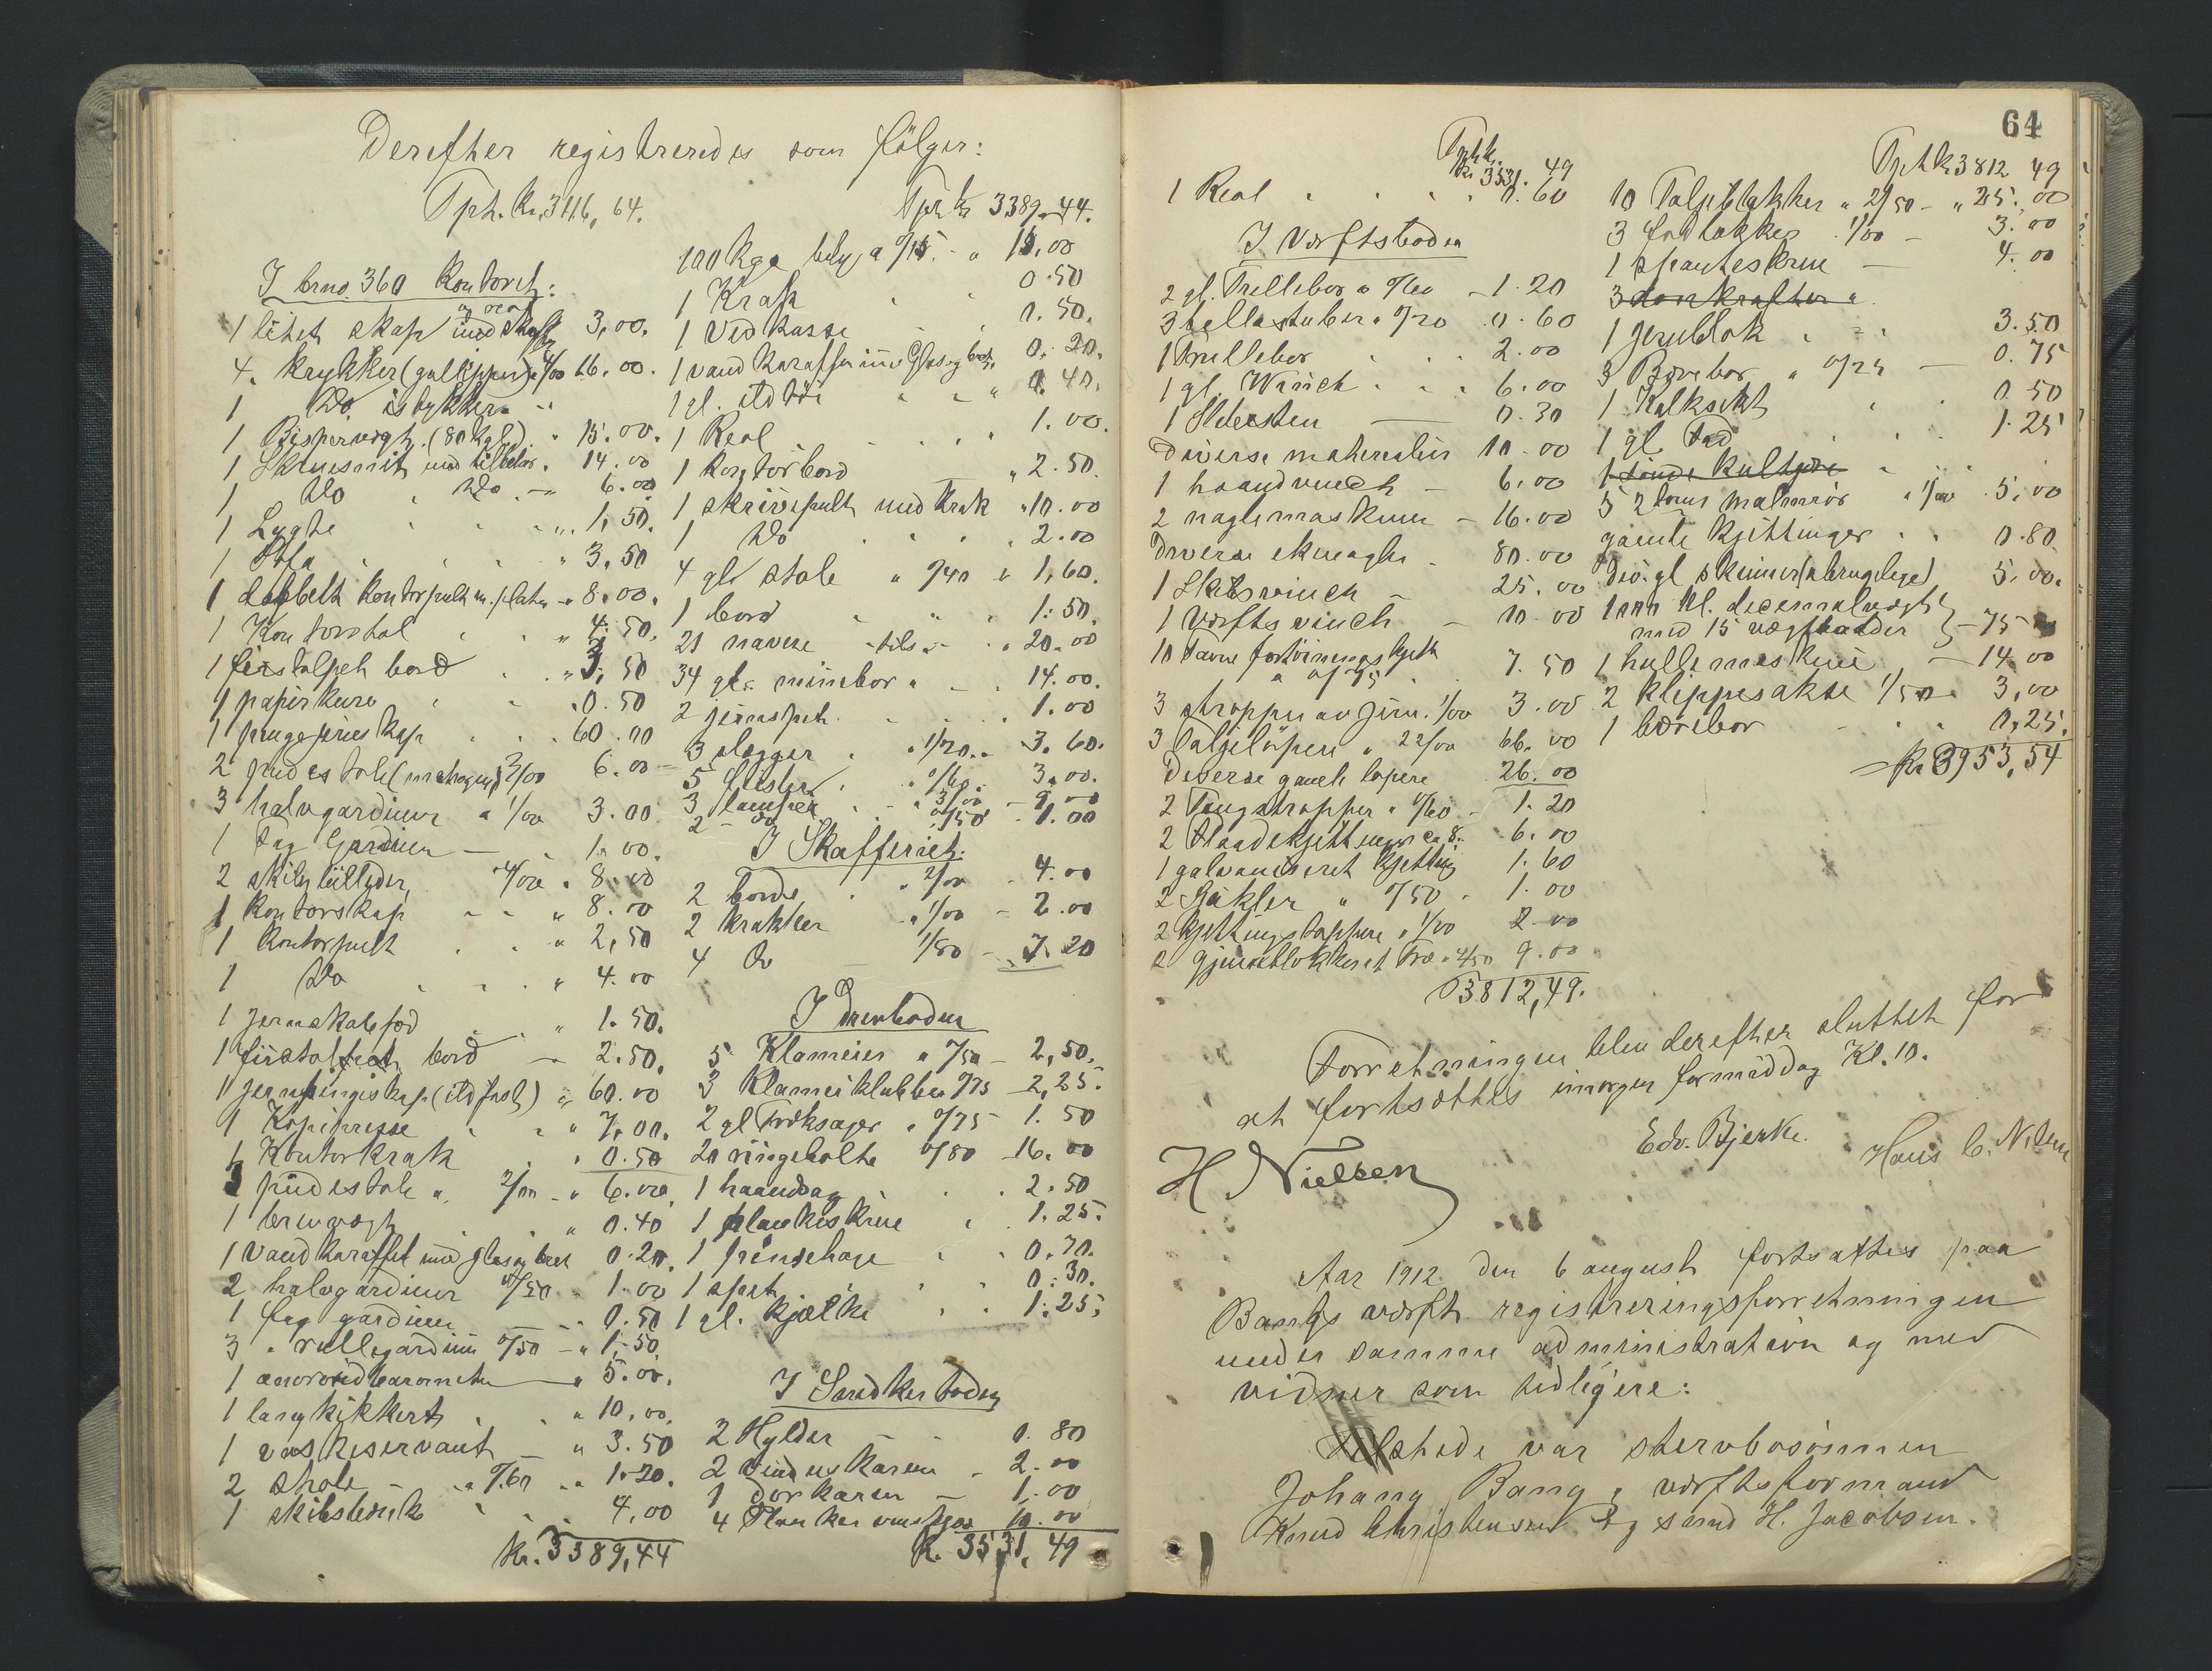 Derefter registreredes som følger:
Tph. Kr. 3116, 64.
I brno. 360 Kontoret:
og reol
1 litet skap med skuffer 3,00.
4. krykker (galljpper) a 4/00 16.00.
1 Do. istykker
1 Bismervegt. (80 Kgl.) 15.00.
1 Skruesnit med tilbehør. 14.00
1 Do Do 6.00
1 Lygte 1,50.
1 Sofa 3,50
1 dobbelt Kontorpult m. plater 8.00.
1 Kontorstol 4.50.
1 firstolpet bord 3,50
1 papirkurv 0.50
1 pengejernskap 60.00
2 pudestole (mahogni) 3/00 6.00
3 halvgardiner a 1/00 3.00
1 Fag Gardiner 1.00.
2 skilg billeder 4/00 8.00
1 Kontorskap 8.00
1 Kontorpult 2,50
1 Do 4.00
1 Jernskabsfod 1.50.
1 firstolpet bord 2.50.
1 jernpengeskap (ildfast) 60.00
1 Kopipresse 7,00.
1 Kontorkrak 0.50
3 pudestole 2/00 6.00
1 brevvegt 0.40
1 Vandkaraffel med glas og bret 0.20.
2 halvgardiner 0/50 1.00
1 fag gardiner 0.50
3 " rullegardin 0/50 1.50.
1 aneroidbarometer 5.00.
1 langkikkert 10.00.
1 vaskeservant 3.50
2 stole 0/60 1.20.
1 skibsbenk 4,00
Kr. 3389,44
Tph Kr 3389.44.
100 kgr a 0/15. 15.00
1 Krak 0.50
1 Vedkasse 0.50.
1 vandkaraffel med Glas og bret 0.20.
1 gl. ildtøi 0.40.
1 Reol 1.00.
1 kontorbord 2.50.
1 skrivepult med Krak 10.00
1 Do 2.00
4 gl stole 0/40 1,60.
1 bord 1.50.
21 navere 20.00
34 gl. minebor 14.00.
2 jernspet 1.00
3 slægger 1/20 3.60.
5 feisler 0/60 3.00.
3 lamper 3/00 9.00
2 do 0/50 1.00
I Skafferiet:
2 borde 2/00 4.00
2 krakker 1/00 2.00
4 Do 1/80 7.20
I Drevboden
5 Klameier 0/50 2,50.
3 Klameiklubber 0/75 2,25.
2 gl Træksager 0/75 1.50
20 ringebolte 0/80 16.00
1 haandsag 2.50
1 plankeskrue 1.25.
1 0.70.
1 spet 0.30.
1 gl. kjælke 1.25.
I Smedkerboden
2 Hylder 0.80
2 vinduskarmer 2.00
1 Dørkarm 1.00
4 Planker 10.00
K. 3531,49
64
Tph. Kr 3531. 49
1 Reol 0.60
I Værftsboden
2 gl. Trillebor a 0/60 1.20
3 0/20 0.60
1 Trillebor 2.00
1 gl. Winch 6.00
1 Slibesten 0.30
Diverse materialier 10.00
1 haandvinch 6.00
2 naglemaskiner 16.00
Diverse 80.00
1 Skibsvinch 25.00
1 Værftsvinch 10.00
10 Favne fortøiningskjett
a 0/75 7.50
3 stropper av Jern. 1/00 3.00
3 Taljeløpere 22/00 66.00
Diverse gamle lopere 26.00
2 Taugstropper 0/60 1.20
2 6.00
1 galvaniseret kjetting 1.60
2 Sjækler 0/50 1.00
2 Kjettingstoppere 1/00 2.00
2 Gjineblokker et Træ 4/50 9.00
3812,49.
Tph kr 3812 49
10 Taljeblokker a 2/50 25.00
3 fodblokker 1/00 3.00
1 spanteskrue 4.00
3 donkrafter
1 jernblok 3.50
3 Borebor 0/25 0.75
1 Kalksikt 0.50
1 gl. Fad 1.25
1 tønde kultjære
5 2 toms malmrør 1/00 5.00
gamle kjettinger 0.80
Div. gl skinner (ubrugelige) 5.00.
1000 Kl. decimalvegt
med 15 vægtlodder 75
1 hullemaskine 14.00
2 klippesakse 1/50 3,00
1 børebor 0,25.
Kr 3953,54
Forretningen blev derefter sluttet for
at fortsættes imorgen formiddag Kl. 10.
H Nielsen Edv. Bjerke. Hans C. Nilsen
Aar 1912 den 6 august fortsattes paa
Bangs værft registreringsforretningen
under samme administration og med
vidner som tidligere:
Tilstede var stervbosønnen
Johang Bang, værftsformand
Knud Christensen og smed H. Jacobsen.